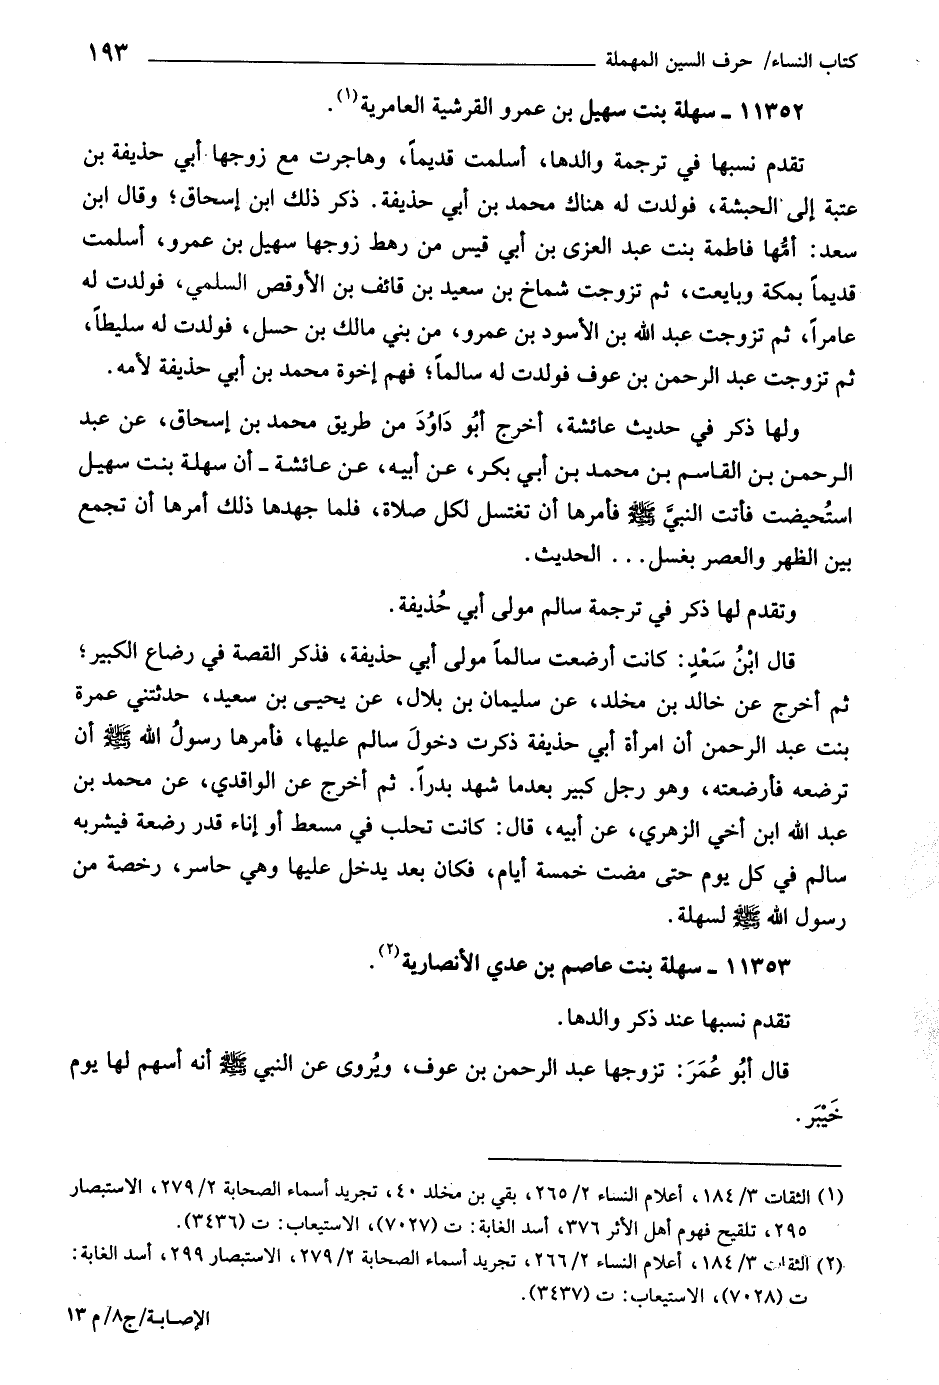 كتاب النساء/ حرف السين المهملة ١٩٣
١١٣٥٢ ـ سهلة بنت سهيل بن عمرو القرشية العامرية(١).
تقدم نسبها في ترجمة والدها، أسلمت قديماً، وهاجرت مع زوجها أبي حذيفة بن
عتبة إلى الحبشة، فولدت له هناك محمد بن أبي حذيفة. ذكر ذلك ابن إسحاق؛ وقال ابن
سعد: أمُّها فاطمة بنت عبد العزى بن أبي قيس من رهط زوجها سهيل بن عمرو، أسلمت
قديماً بمكة وبايعت، ثم تزوجت شماخ بن سعيد بن قائف بن الأوقص السلمي، فولدت له
عامراً، ثم تزوجت عبد الله بن الأسود بن عمرو، من بني مالك بن حسل، فولدت له سليطاً،
ثم تزوجت عبد الرحمن بن عوف فولدت له سالماً؛ فهم إخوة محمد بن أبي حذيفة لأمه.
ولها ذكر في حديث عائشة، أخرج أبُو دَاوُدَ من طريق محمد بن إسحاق، عن عبد
الرحمن بن القاسم بن محمد بن أبي بكر، عن أبيه، عن عائشة ـ أن سهلة بنت سهيل
استُحيضت فأتت النبيَّ ﷺ فأمرها أن تغتسل لكل صلاة، فلما جهدها ذلك أمرها أن تجمع
بين الظهر والعصر بغسل... الحديث.
وتقدم لها ذكر في ترجمة سالم مولى أبي حُذيفة.
قال ابْنُ سَعْدٍ: كانت أرضعت سالماً مولى أبي حذيفة، فذكر القصة في رضاع الكبير؛
ثم أخرج عن خالد بن مخلد، عن سليمان بن بلال، عن يحيى بن سعيد، حدثتني عمرة
بنت عبد الرحمن أن امرأة أبي حذيفة ذكرت دخولَ سالم عليها، فأمرها رسولُ الله ﷺ أن
ترضعه فأرضعته، وهو رجل كبير بعدما شهد بدراً. ثم أخرج عن الواقدي، عن محمد بن
عبد الله ابن أخي الزهري، عن أبيه، قال: كانت تحلب في مسعط أو إناء قدر رضعة فيشربه
سالم في كل يوم حتى مضت خمسة أيام، فكان بعد يدخل عليها وهي حاسر، رخصة من
رسول الله ﷺ لسهلة.
١١٣٥٣ ـ سهلة بنت عاصم بن عدي الأنصارية(٢).
تقدم نسبها عند ذكر والدها.
قال أبُو عُمَرَ: تزوجها عبد الرحمن بن عوف، ويُروى عن النبي ﷺ أنه أسهم لها يوم
خَيْبَر.
(١) الثقات ٣/ ١٨٤، أعلام النساء ٢/ ٢٦٥، بقي بن مخلد ٤٠، تجريد أسماء الصحابة ٢/ ٢٧٩، الاستبصار
٢٩٥، تلقيح فهوم أهل الأثر ٣٧٦، أسد الغابة: ت (٧٠٢٧)، الاستيعاب: ت (٣٤٣٦).
(٢) الثقات ٣/ ١٨٤، أعلام النساء ٢/ ٢٦٦، تجريد أسماء الصحابة ٢/ ٢٧٩، الاستبصار ٢٩٩، أسد الغابة:
ت (٧٠٢٨)، الاستيعاب: ت (٣٤٣٧).
الإصابة/ج٨/م ١٣